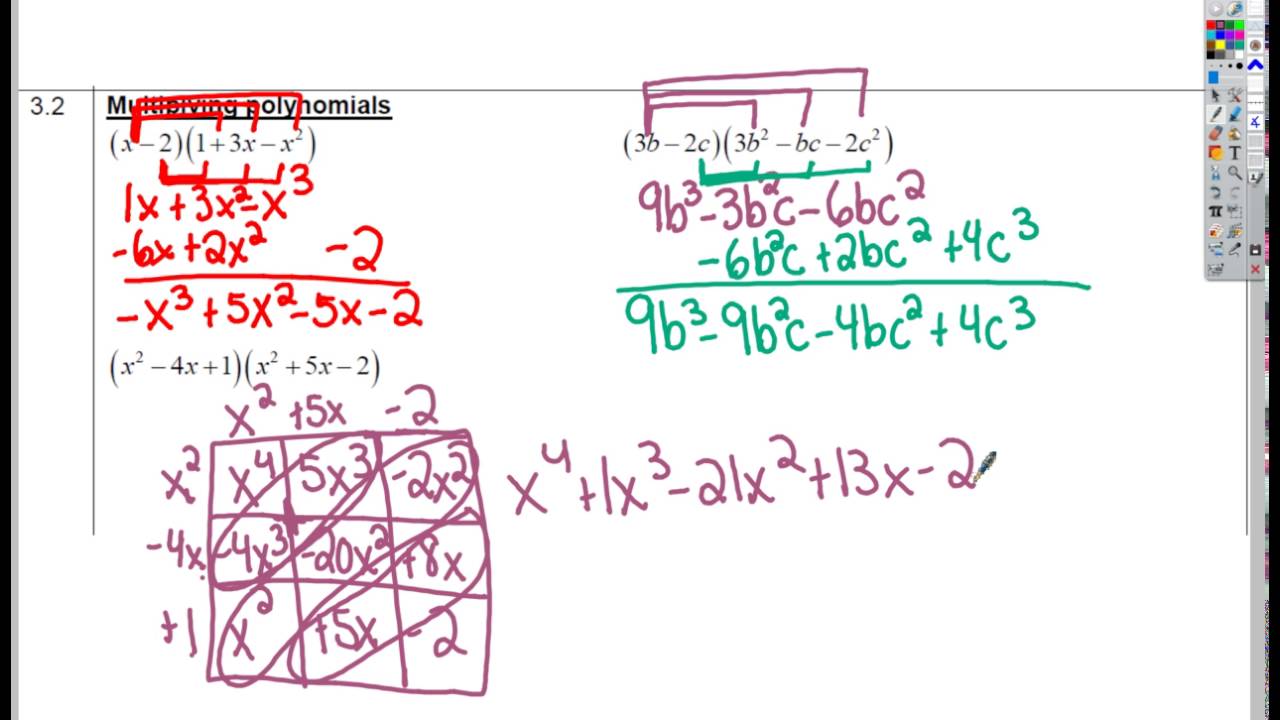 3.2 Multiplying polynomials
(x − 2)(1 + 3x − x²)
1x + 3x² − x³
−6x + 2x² −2
−x³ + 5x² − 5x − 2
(3b − 2c)(3b² − bc − 2c²)
9b³ − 3b²c − 6bc²
−6b²c + 2bc² + 4c³
9b³ − 9b²c − 4bc² + 4c³
(x² − 4x + 1)(x² + 5x − 2)
x² +5x −2
x² x⁴ 5x³ −2x²
−4x −4x³ −20x² +8x
+1 x² +5x −2
x⁴ + 1x³ − 21x² + 13x − 2